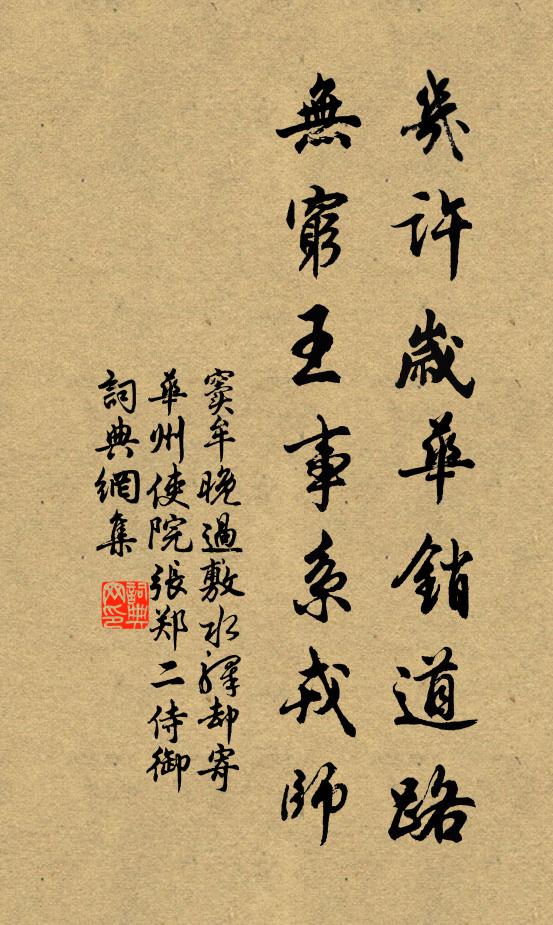 幾許歲華銷道路
無窮王事系戎師
竇牟晚過敷水驛却寄
華州使院張郑二侍御
詞典網集
詞典
网印